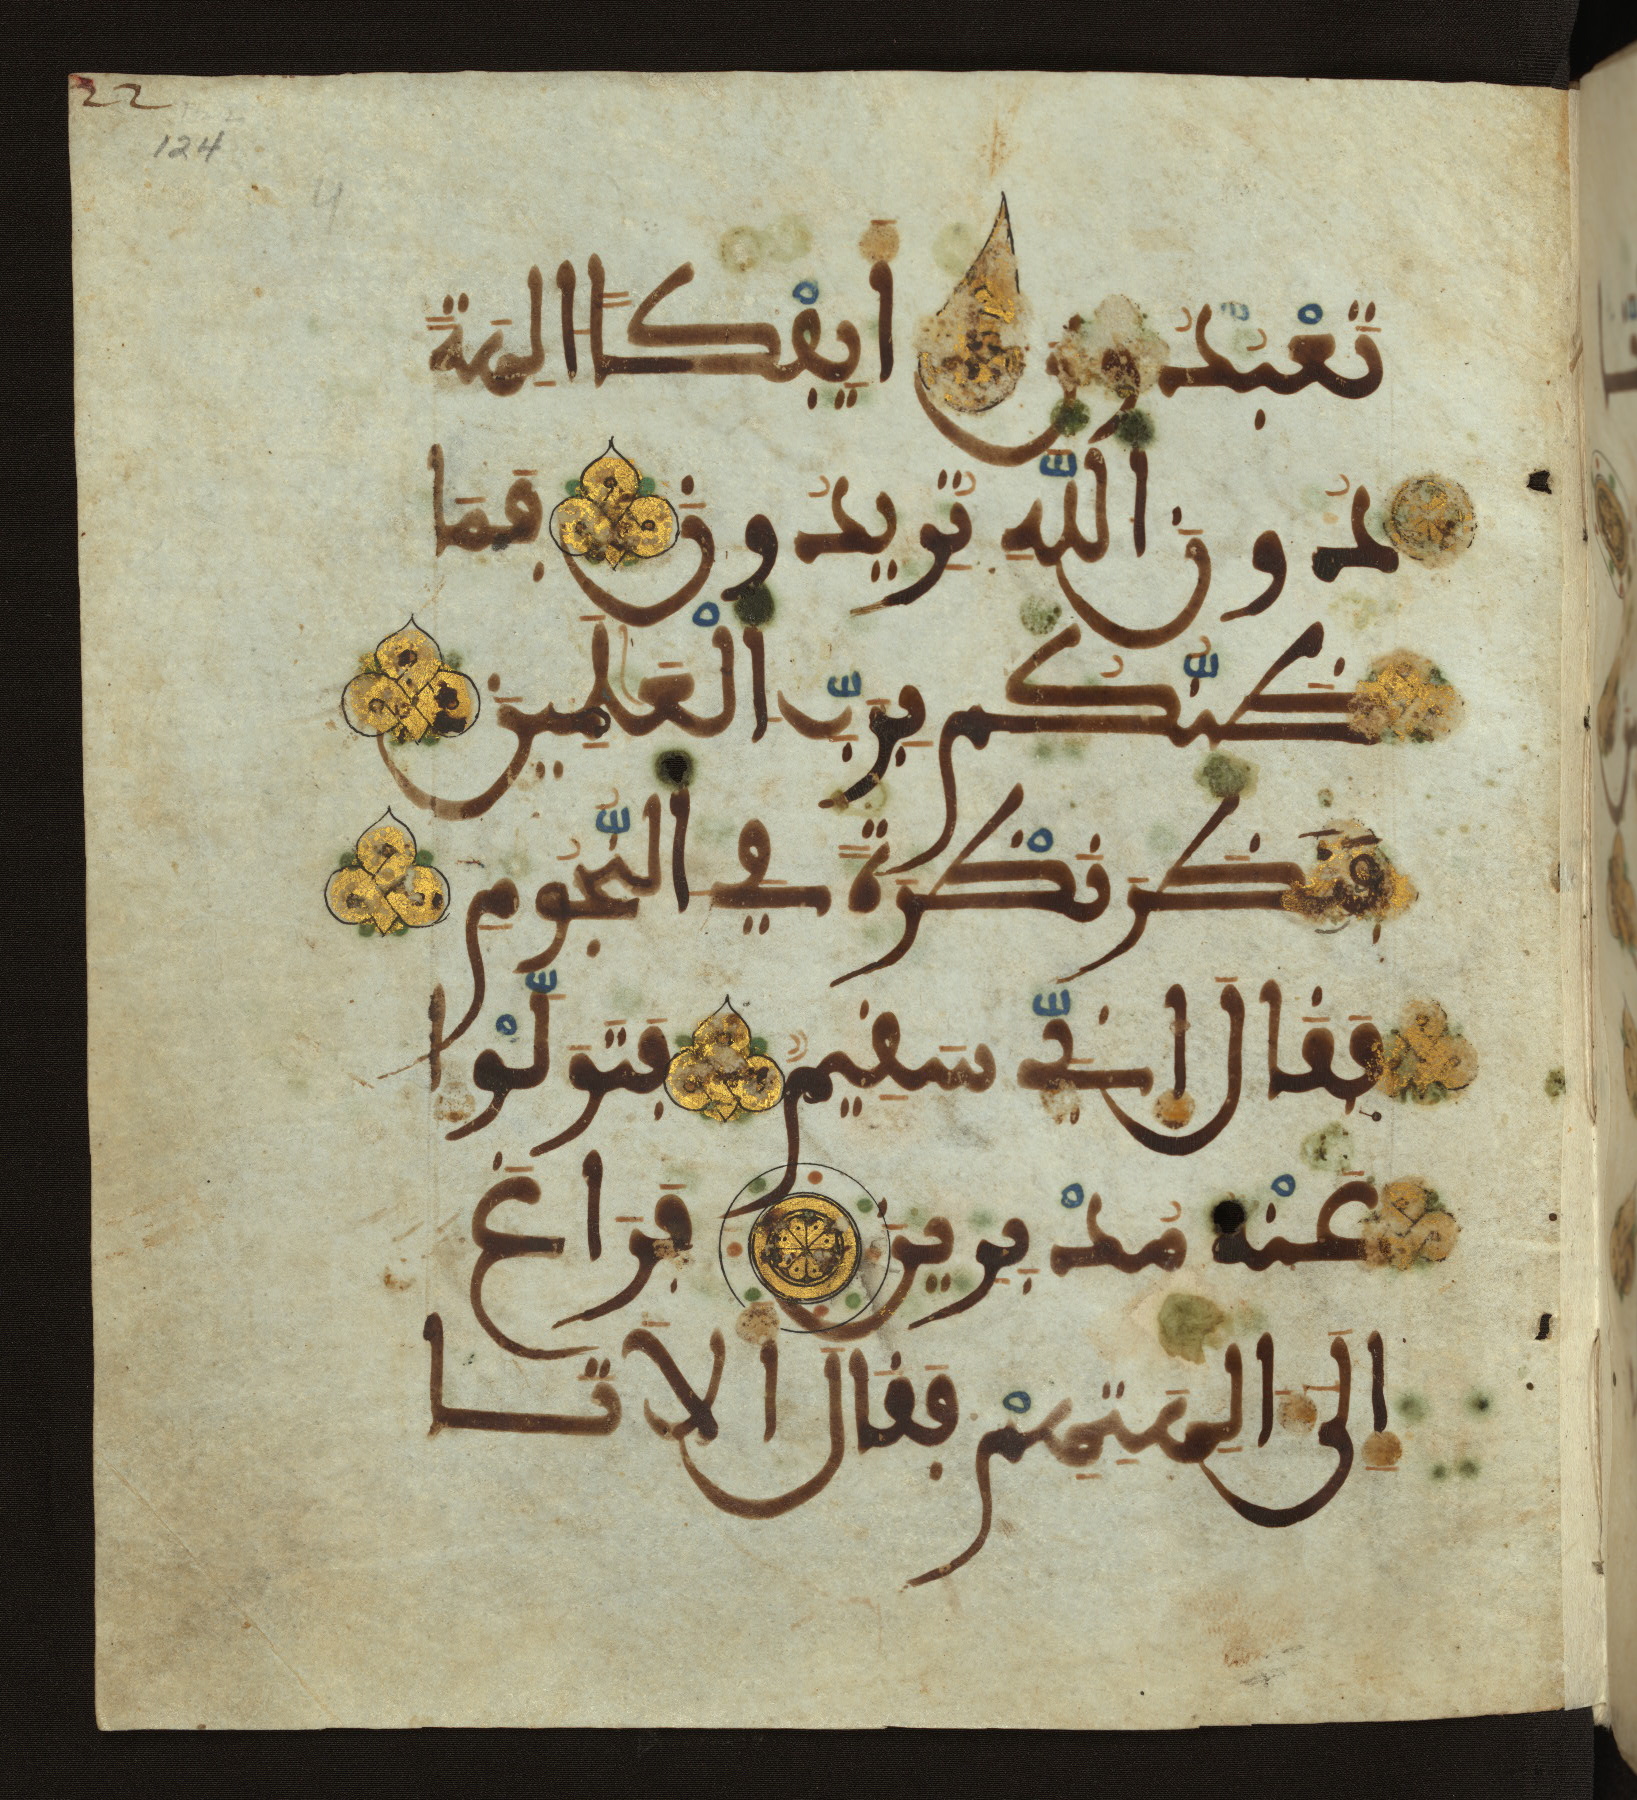 22
124
4
تَعْبُدُونَ أَيِفْكًا اٰلِهَةً
دُونَ اَللَّهِ تُرِيدُونَ فَمَا
ظَنُّكُم بِرَبِّ اِلْعَٰلَمِينَ
فَنَظَرَ نَظْرَةً فِي اِلنُّجُومِ
فَقَالَ إِنِّي سَقِيمٌ فَتَوَلَّوْا
عَنْهُ مُدْبِرِينَ فَرَاغَ
إِلَىٰ ءَالِهَتِهِمْ فَقَالَ أَلَا تَا